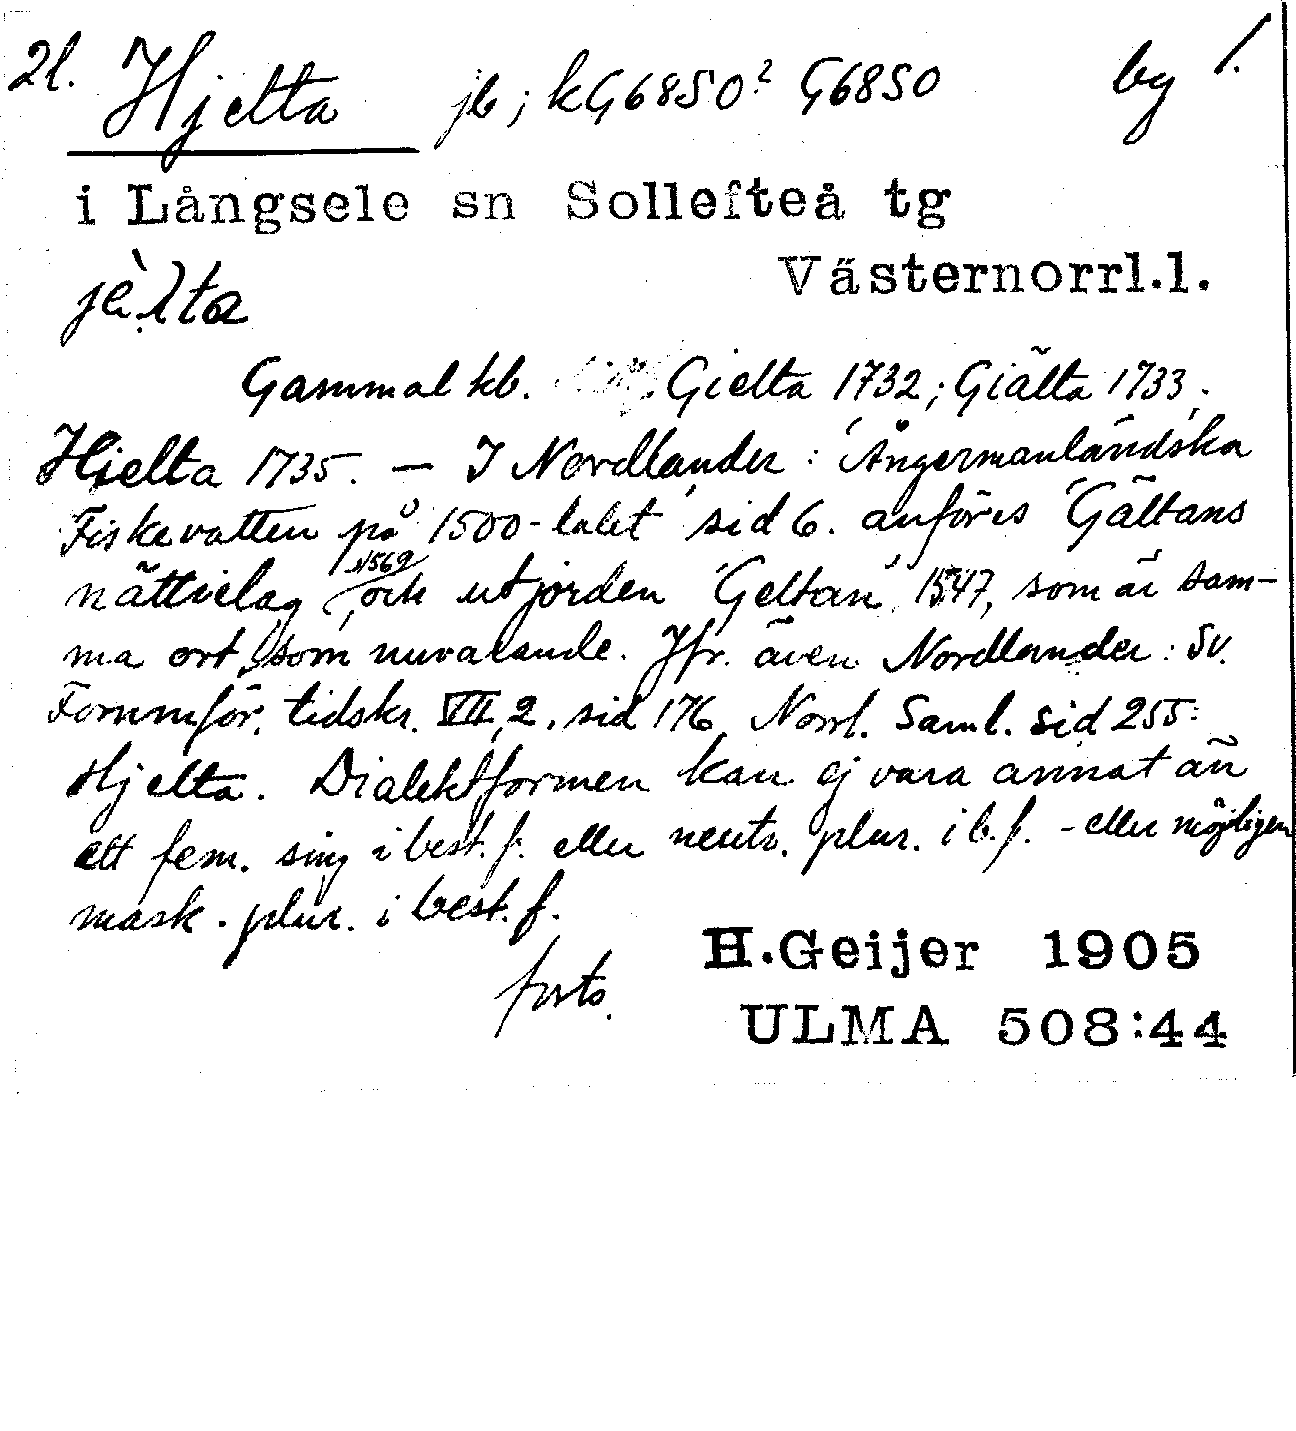 2l. Hjelta jb; kG6850² G6850 by 1.
i Långsele sn Sollefteå tg
Västernorrl.l.
jèlta
Gammal kb. Gielta 1732; Giälta 1733.
Hielta 1735. — I Nordlander: "Ångermanländska
Fiskevatten på 1500-talet" sid 6. anföres "Gältans
nättielag" 1569 och utjorden "Geltan" 1547, som är sam-
ma ort som nuvarande. Jfr. även Nordlander: Sv.
Fornmför. tidskr. VII, 2. sid 176, Norrl. Saml. sid 255:
Hjelta. Dialektformen kan ej vara annat än
ett fem. sing i best. f. eller neutr. plur. i b. f. - eller möjligen
mask. plur. i best. f.
forts.
H.Geijer 1905
ULMA 508:44